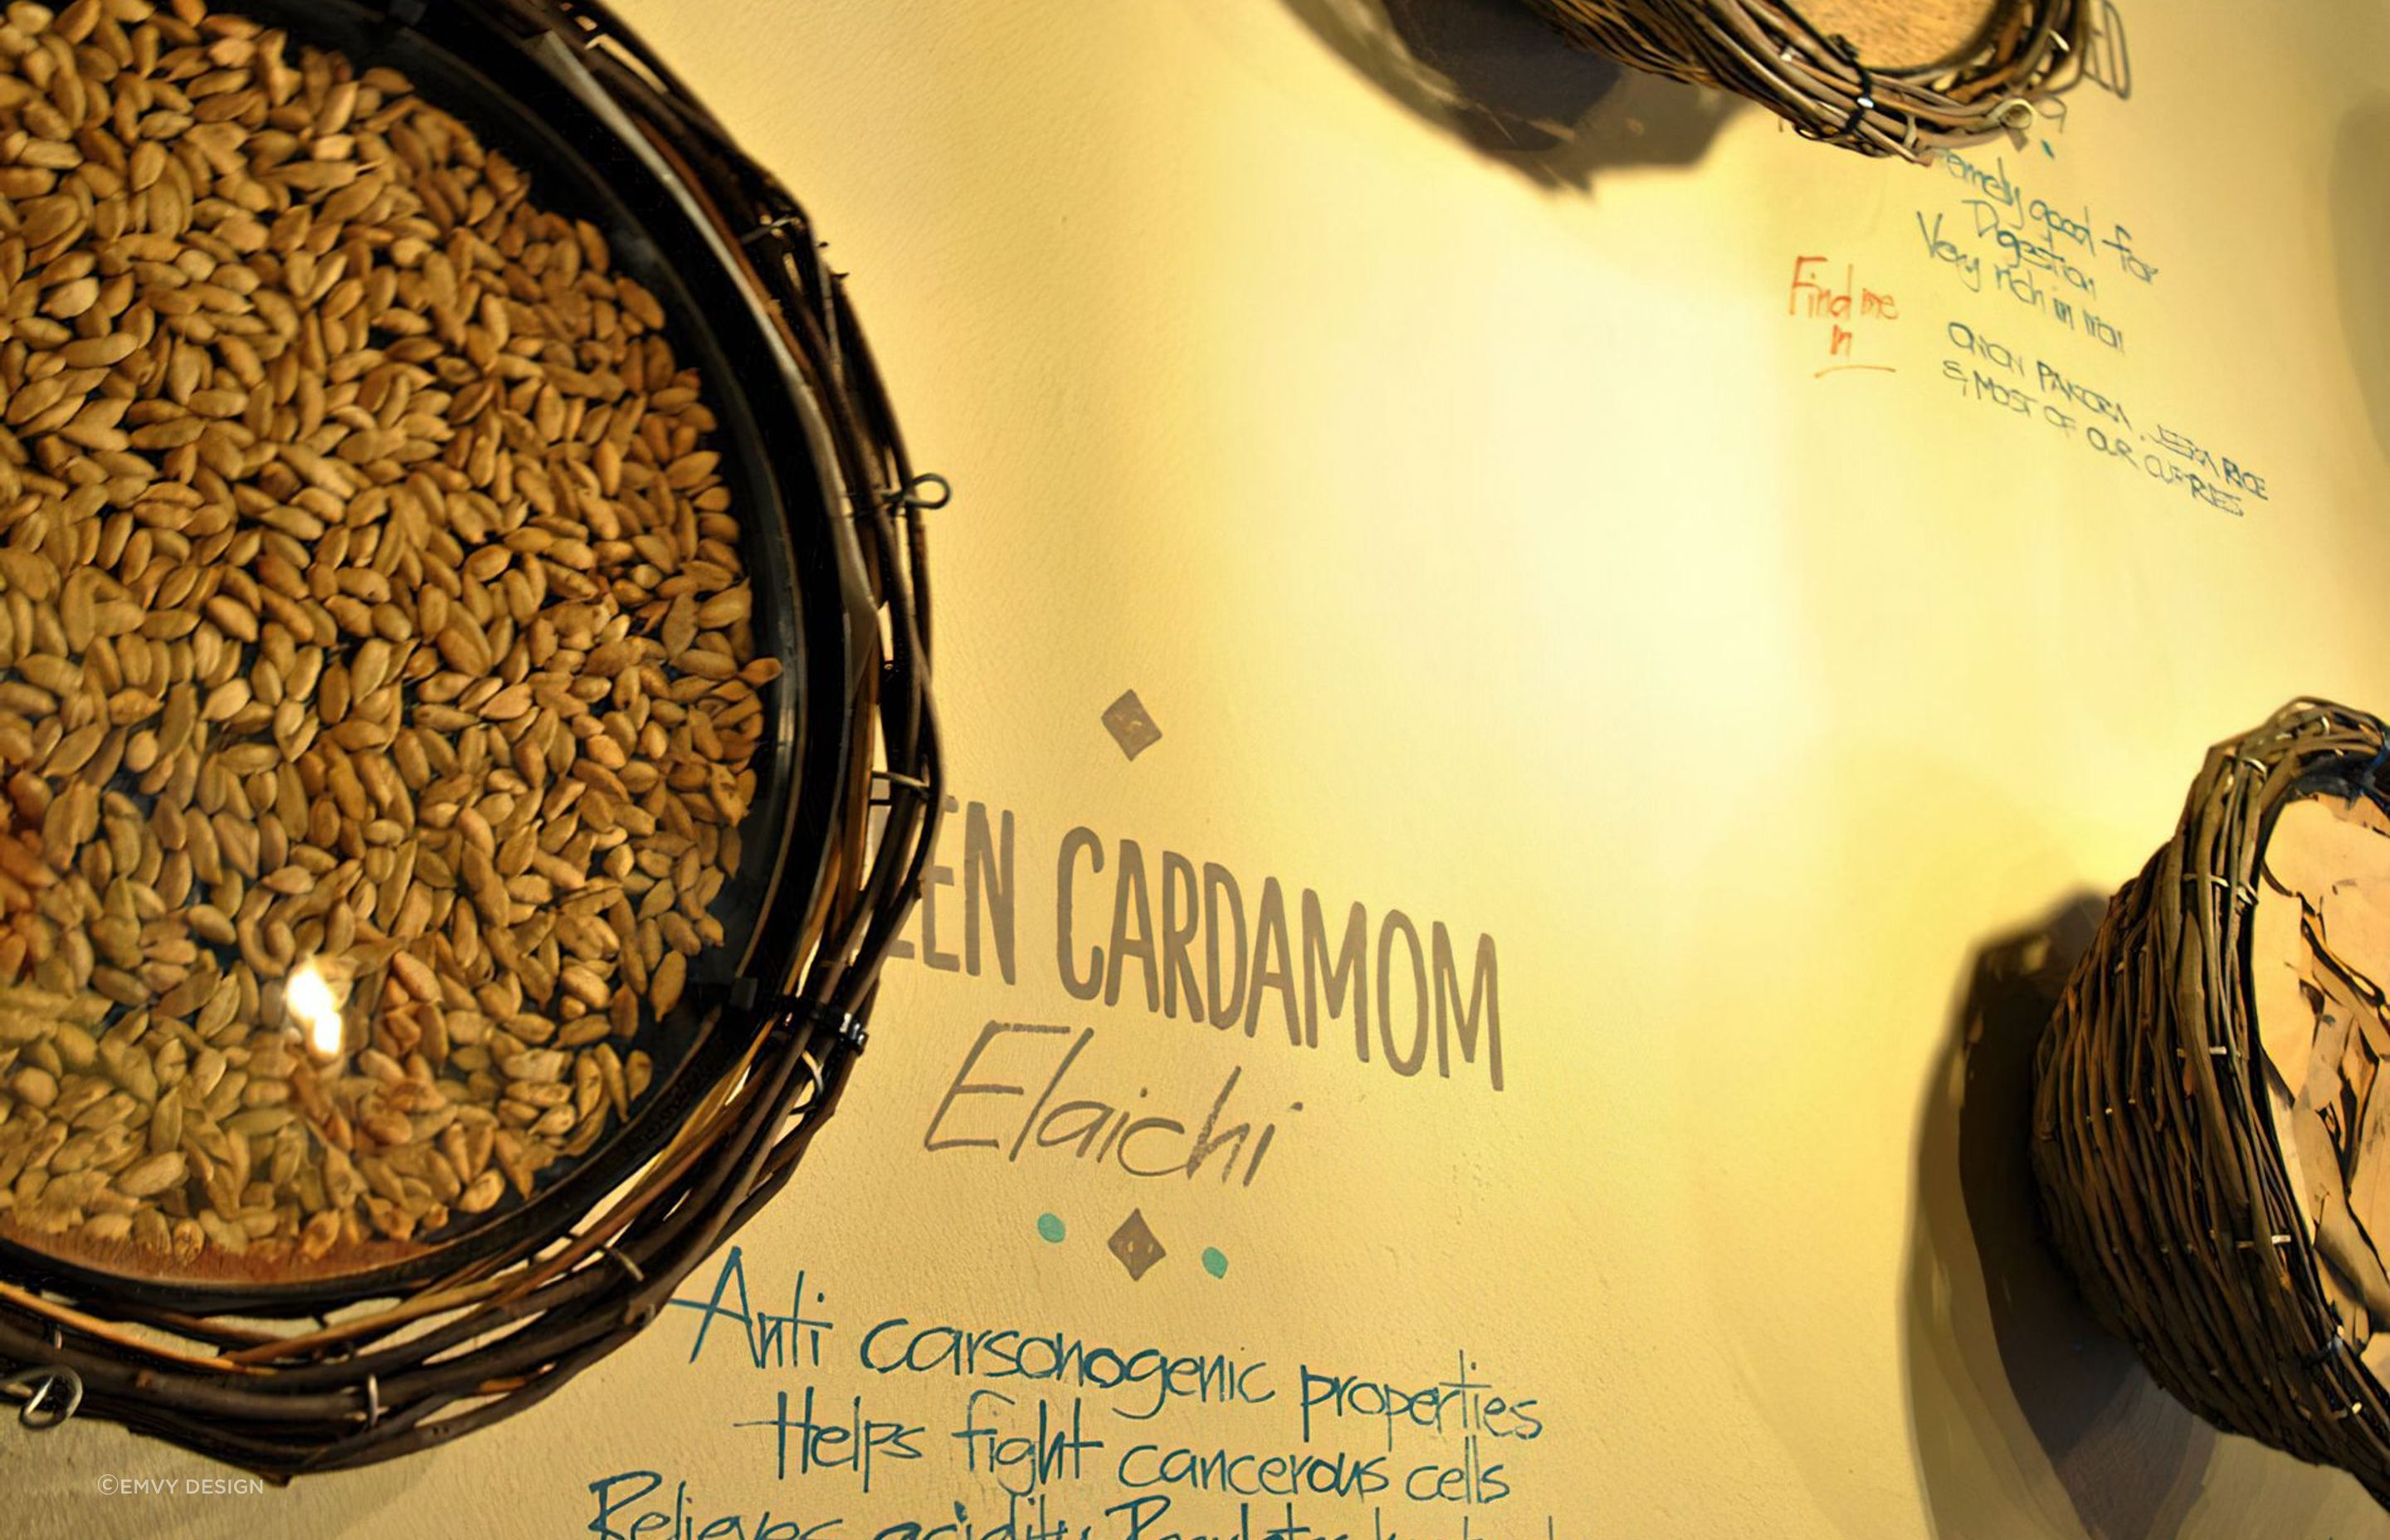 good for
Digestion
Very rich in iron
Find me
in
ONION PAKORA, JEERA RICE
& MOST OF OUR CURRIES
EEN CARDAMOM
Elaichi
Anti carsonogenic properties
Helps fight cancerous cells
Relieves acidity
©EMVY DESIGN